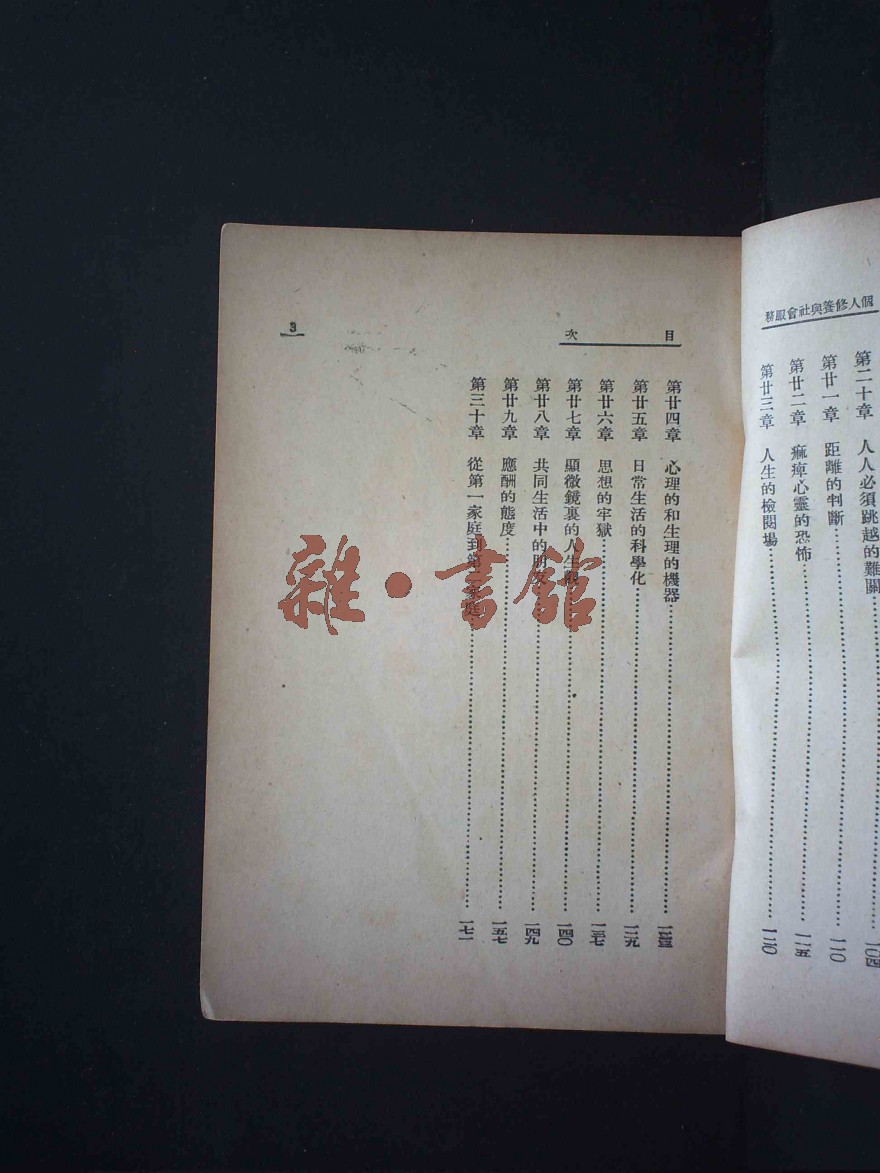 個人修養與社會服務
第二十章 人人必須跳越的難關……一〇四
第廿一章 距離的判斷……一一〇
第廿二章 痲痺心靈的恐怖……一一五
第廿三章 人生的檢閱場……一二〇
目次
第廿四章 心理的和生理的機器……一二三
第廿五章 日常生活的科學化……一二九
第廿六章 思想的牢獄……一三七
第廿七章 顯微鏡裏的人生觀……一四〇
第廿八章 共同生活中的朋友……一四九
第廿九章 應酬的態度……一五七
第三十章 從第一家庭到第二家庭……一七一
3
雜·書館